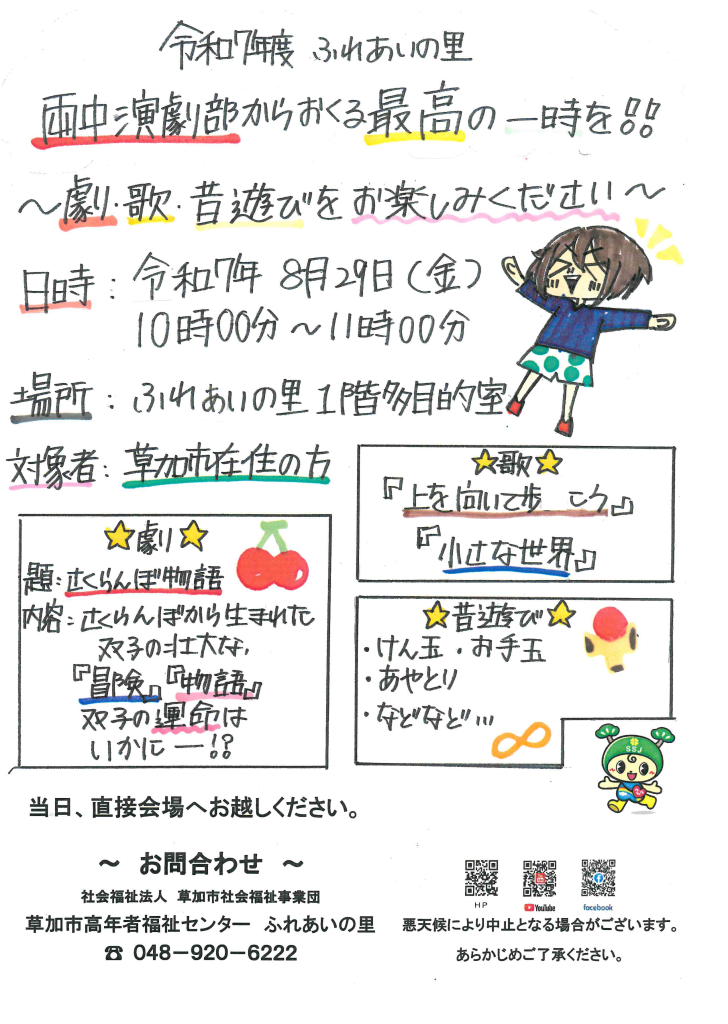 令和7年度 ふれあいの里
両中演劇部からおくる最高の一時を!!
～劇・歌・昔遊びをお楽しみください～
日時：令和7年 8月29日（金）
10時00分～11時00分
場所：ふれあいの里1階多目的室
対象者：草加市在住の方
☆劇り☆
題：さくらんぼ物語
内容：さくらんぼから生まれた
双子の壮大な、
『冒険』『物語』
双子の運命は
いかに―!?
☆歌☆
『上を向いて歩こう』
『小さな世界』
☆昔遊び☆
・けん玉・お手玉
・あやとり
・などなど…
SSJ
当日、直接会場へお越しください。
～ お問合わせ ～
社会福祉法人 草加市社会福祉事業団
草加市高年者福祉センター ふれあいの里
☎ 048－920－6222
HP YouTube facebook
悪天候により中止となる場合がございます。
あらかじめご了承ください。